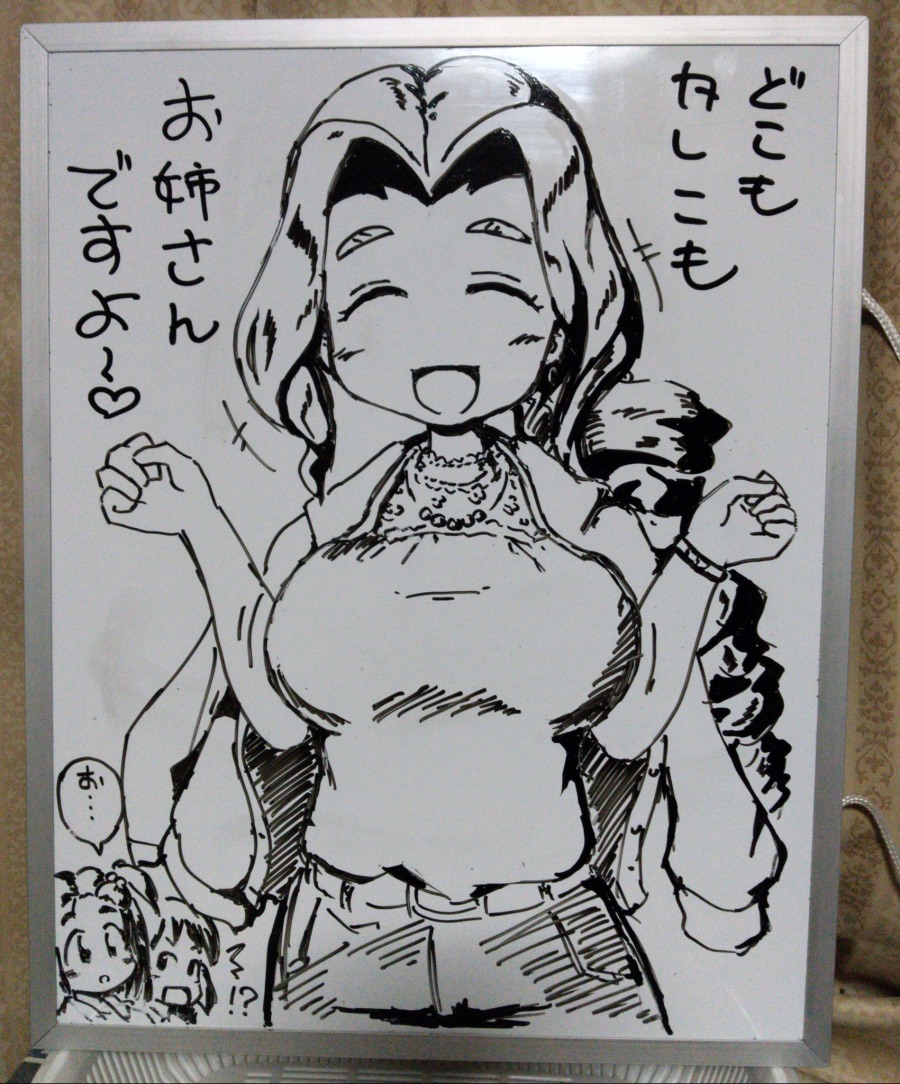 どこも
カしこも
お姉さん
ですよ〜♡
お…
!?